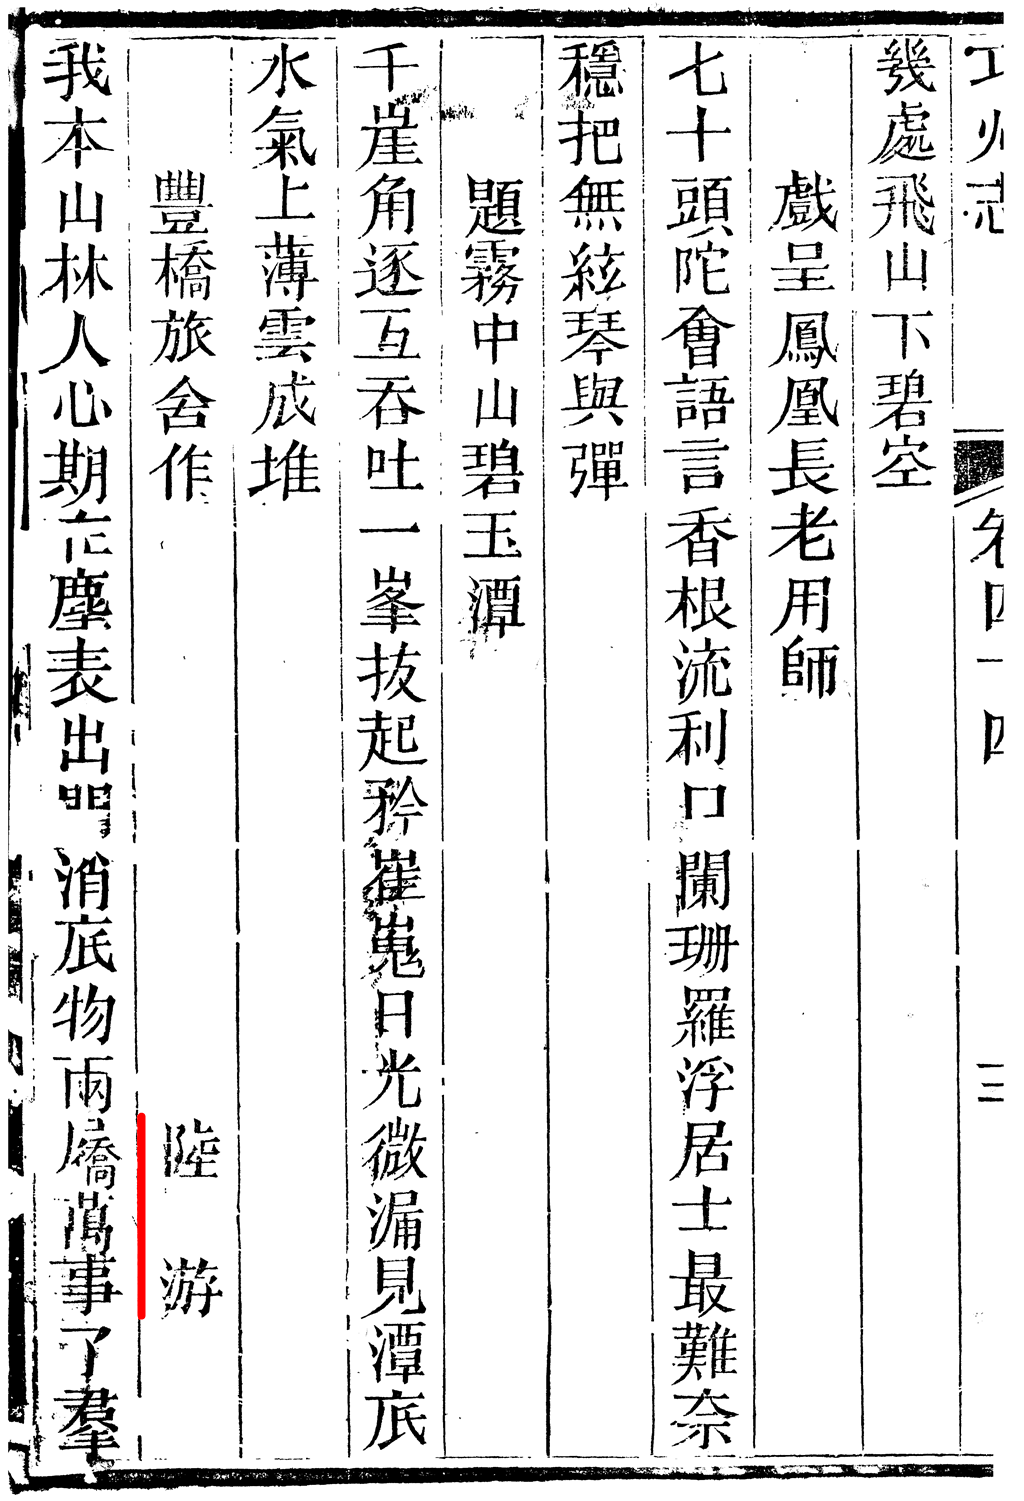 卷四十四
三
幾處飛山下碧空
戲呈鳳凰長老用師
七十頭陀會語言香根流利口闌珊羅浮居士最難奈
穩把無絃琴與彈
題霧中山碧玉潭
千崖角逐互吞吐一峯拔起矜崔嵬日光微漏見潭底
水氣上薄雲成堆
豐橋旅舍作
陸游
我本山林人心期在塵表出門消底物兩屩萬事了羣